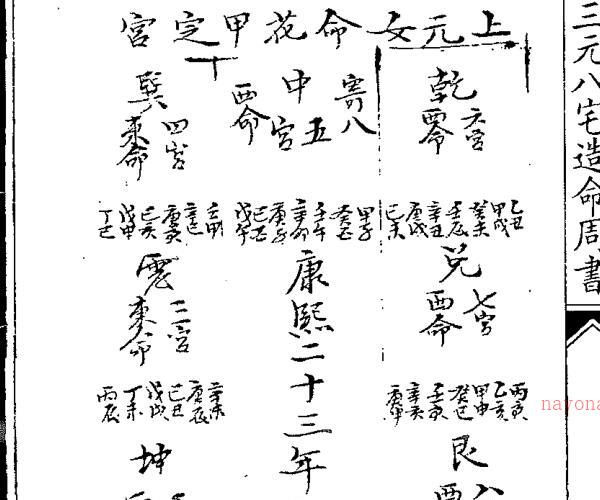 三元八宅造命周書
上元女命花甲定宮
乾 六宮 西命
乙丑 甲戌 癸未 壬辰 辛丑 庚戌 己未
兌 七宮 西命
丙寅 乙亥 甲申 癸巳 壬寅 辛亥 庚申
艮 八 西
中五宮 寄八 西命
甲子 癸酉 壬午 辛卯 庚子 己酉 戊午
康熙二十三年
巽 四宮 東命
壬申 辛巳 庚寅 己亥 戊申 丁巳
震 三宮 東命
辛未 庚辰 己丑 戊戌 丁未 丙辰
坤
nayona